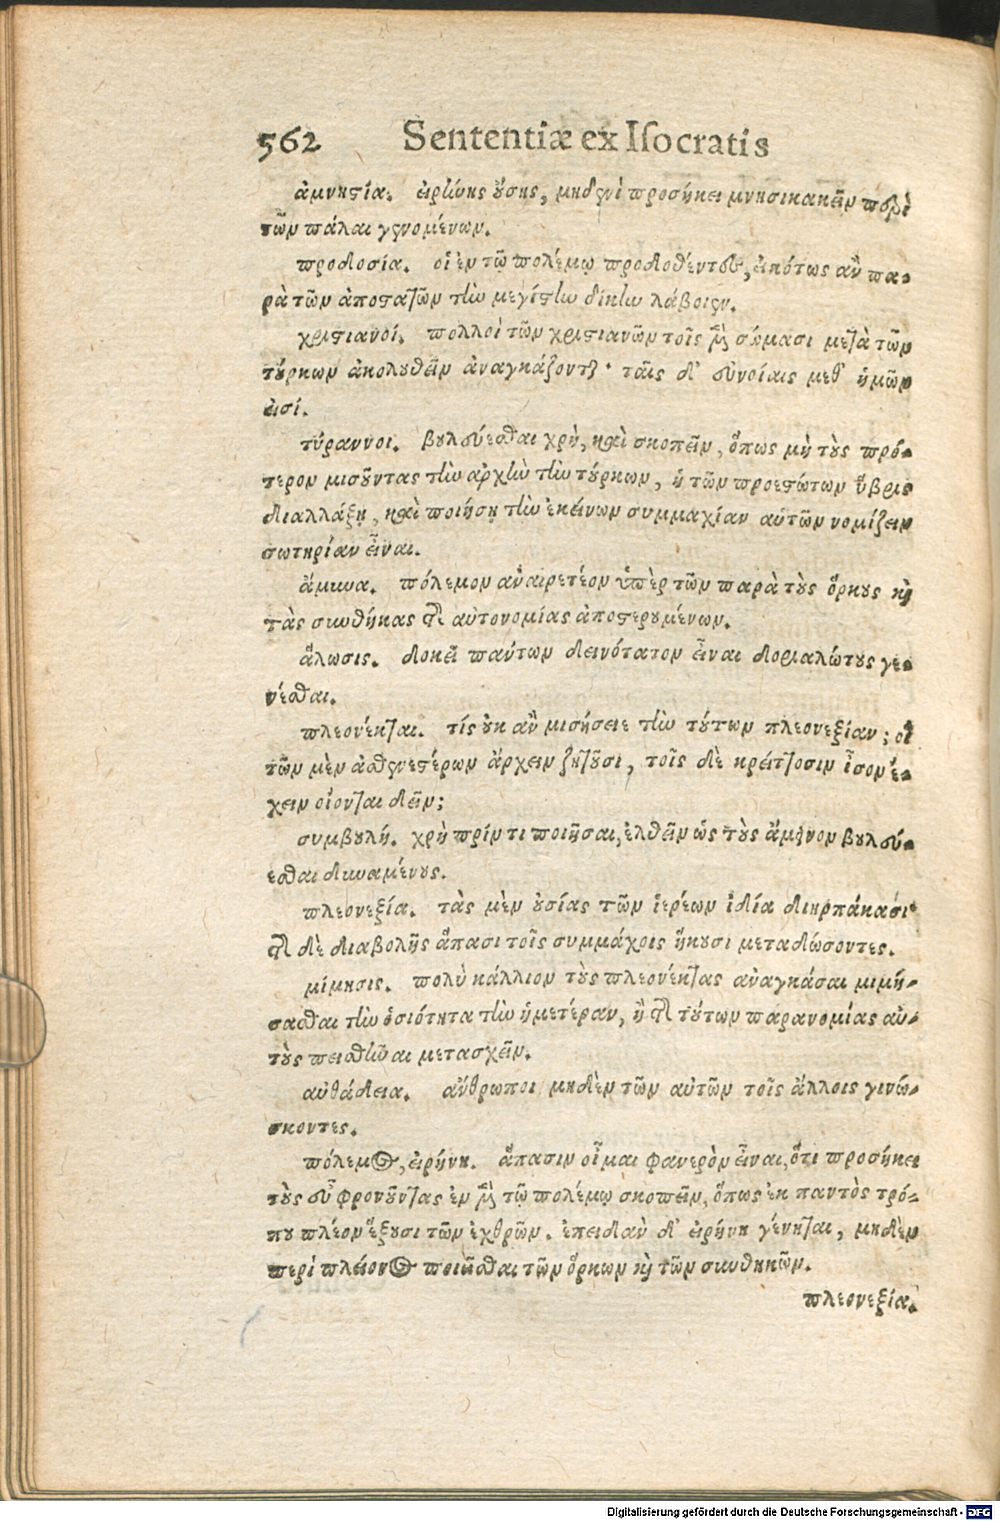 562 Sententiæ ex Iſocratis
ἀμνηστία. εἰρήνης οὔσης, μηδενὶ προσήκει μνησικακεῖν περὶ
τῶν πάλαι γενομένων.
προδοσία. οἱ ἐν τῷ πολέμῳ προδοθέντες, εἰκότως ἂν πα-
ρὰ τῶν ἀποστατῶν τὴν μεγίστην δίκην λάβοιεν.
χριστιανοί. πολλοὶ τῶν χριστιανῶν τοῖς μὲν σώμασι μετὰ τῶν
τύρκων ἀκολουθεῖν ἀναγκάζονται· ταῖς δ' εὐνοίαις μεθ' ἡμῶν
εἰσί.
τύραννοι. βουλεύεσθαι χρὴ, καὶ σκοπεῖν, ὅπως μὴ τοὺς πρό-
τερον μισοῦντας τὴν ἀρχὴν τὴν τύρκων, ἡ τῶν προεστώτων ὕβρις
διαλλάξῃ, καὶ ποιήσῃ τὴν ἐκείνων συμμαχίαν αὑτῶν νομίζειν
σωτηρίαν εἶναι.
ἄμυνα. πόλεμον ἀναιρετέον ὑπὲρ τῶν παρὰ τοὺς ὅρκους καὶ
τὰς συνθήκας τῆς αὐτονομίας ἀποστερουμένων.
ἅλωσις. δοκεῖ πάντων δεινότατον εἶναι δοριαλώτους γε-
νέσθαι.
πλεονέκται. τίς οὐκ ἂν μισήσειε τὴν τούτων πλεονεξίαν; οἳ
τῶν μὲν ἀσθενεστέρων ἄρχειν ζητοῦσι, τοῖς δὲ κρείττοσιν ἴσον ἔ-
χειν οἴονται δεῖν;
συμβουλή. χρὴ πρίν τι ποιῆσαι, ἐλθεῖν ὡς τοὺς ἄμεινον βουλεύ-
εσθαι δυναμένους.
πλεονεξία. τὰς μὲν οὐσίας τῶν ἱερέων ἰδίᾳ διηρπάκασι·
τῆς δὲ διαβολῆς ἅπασι τοῖς συμμάχοις ἥκουσι μεταδώσοντες.
μίμησις. πολὺ κάλλιον τοὺς πλεονέκτας ἀναγκάσαι μιμή-
σασθαι τὴν ὁσιότητα τὴν ἡμετέραν, ἢ τῆς τούτων παρανομίας αὐ-
τοὺς πεισθῆναι μετασχεῖν.
αὐθάδεια. ἄνθρωποι μηδὲν τῶν αὐτῶν τοῖς ἄλλοις γινώ-
σκοντες.
πόλεμος, εἰρήνη. ἅπασιν οἶμαι φανερὸν εἶναι, ὅτι προσήκει
τοὺς εὖ φρονοῦντας ἐν μὲν τῷ πολέμῳ σκοπεῖν, ὅπως ἐκ παντὸς τρό-
που πλέον ἕξουσι τῶν ἐχθρῶν. ἐπειδὰν δ' εἰρήνη γένηται, μηδὲν
περὶ πλείονος ποιεῖσθαι τῶν ὅρκων καὶ τῶν συνθηκῶν.
πλεονεξία.
Digitalisierung gefördert durch die Deutsche Forschungsgemeinschaft - DFG